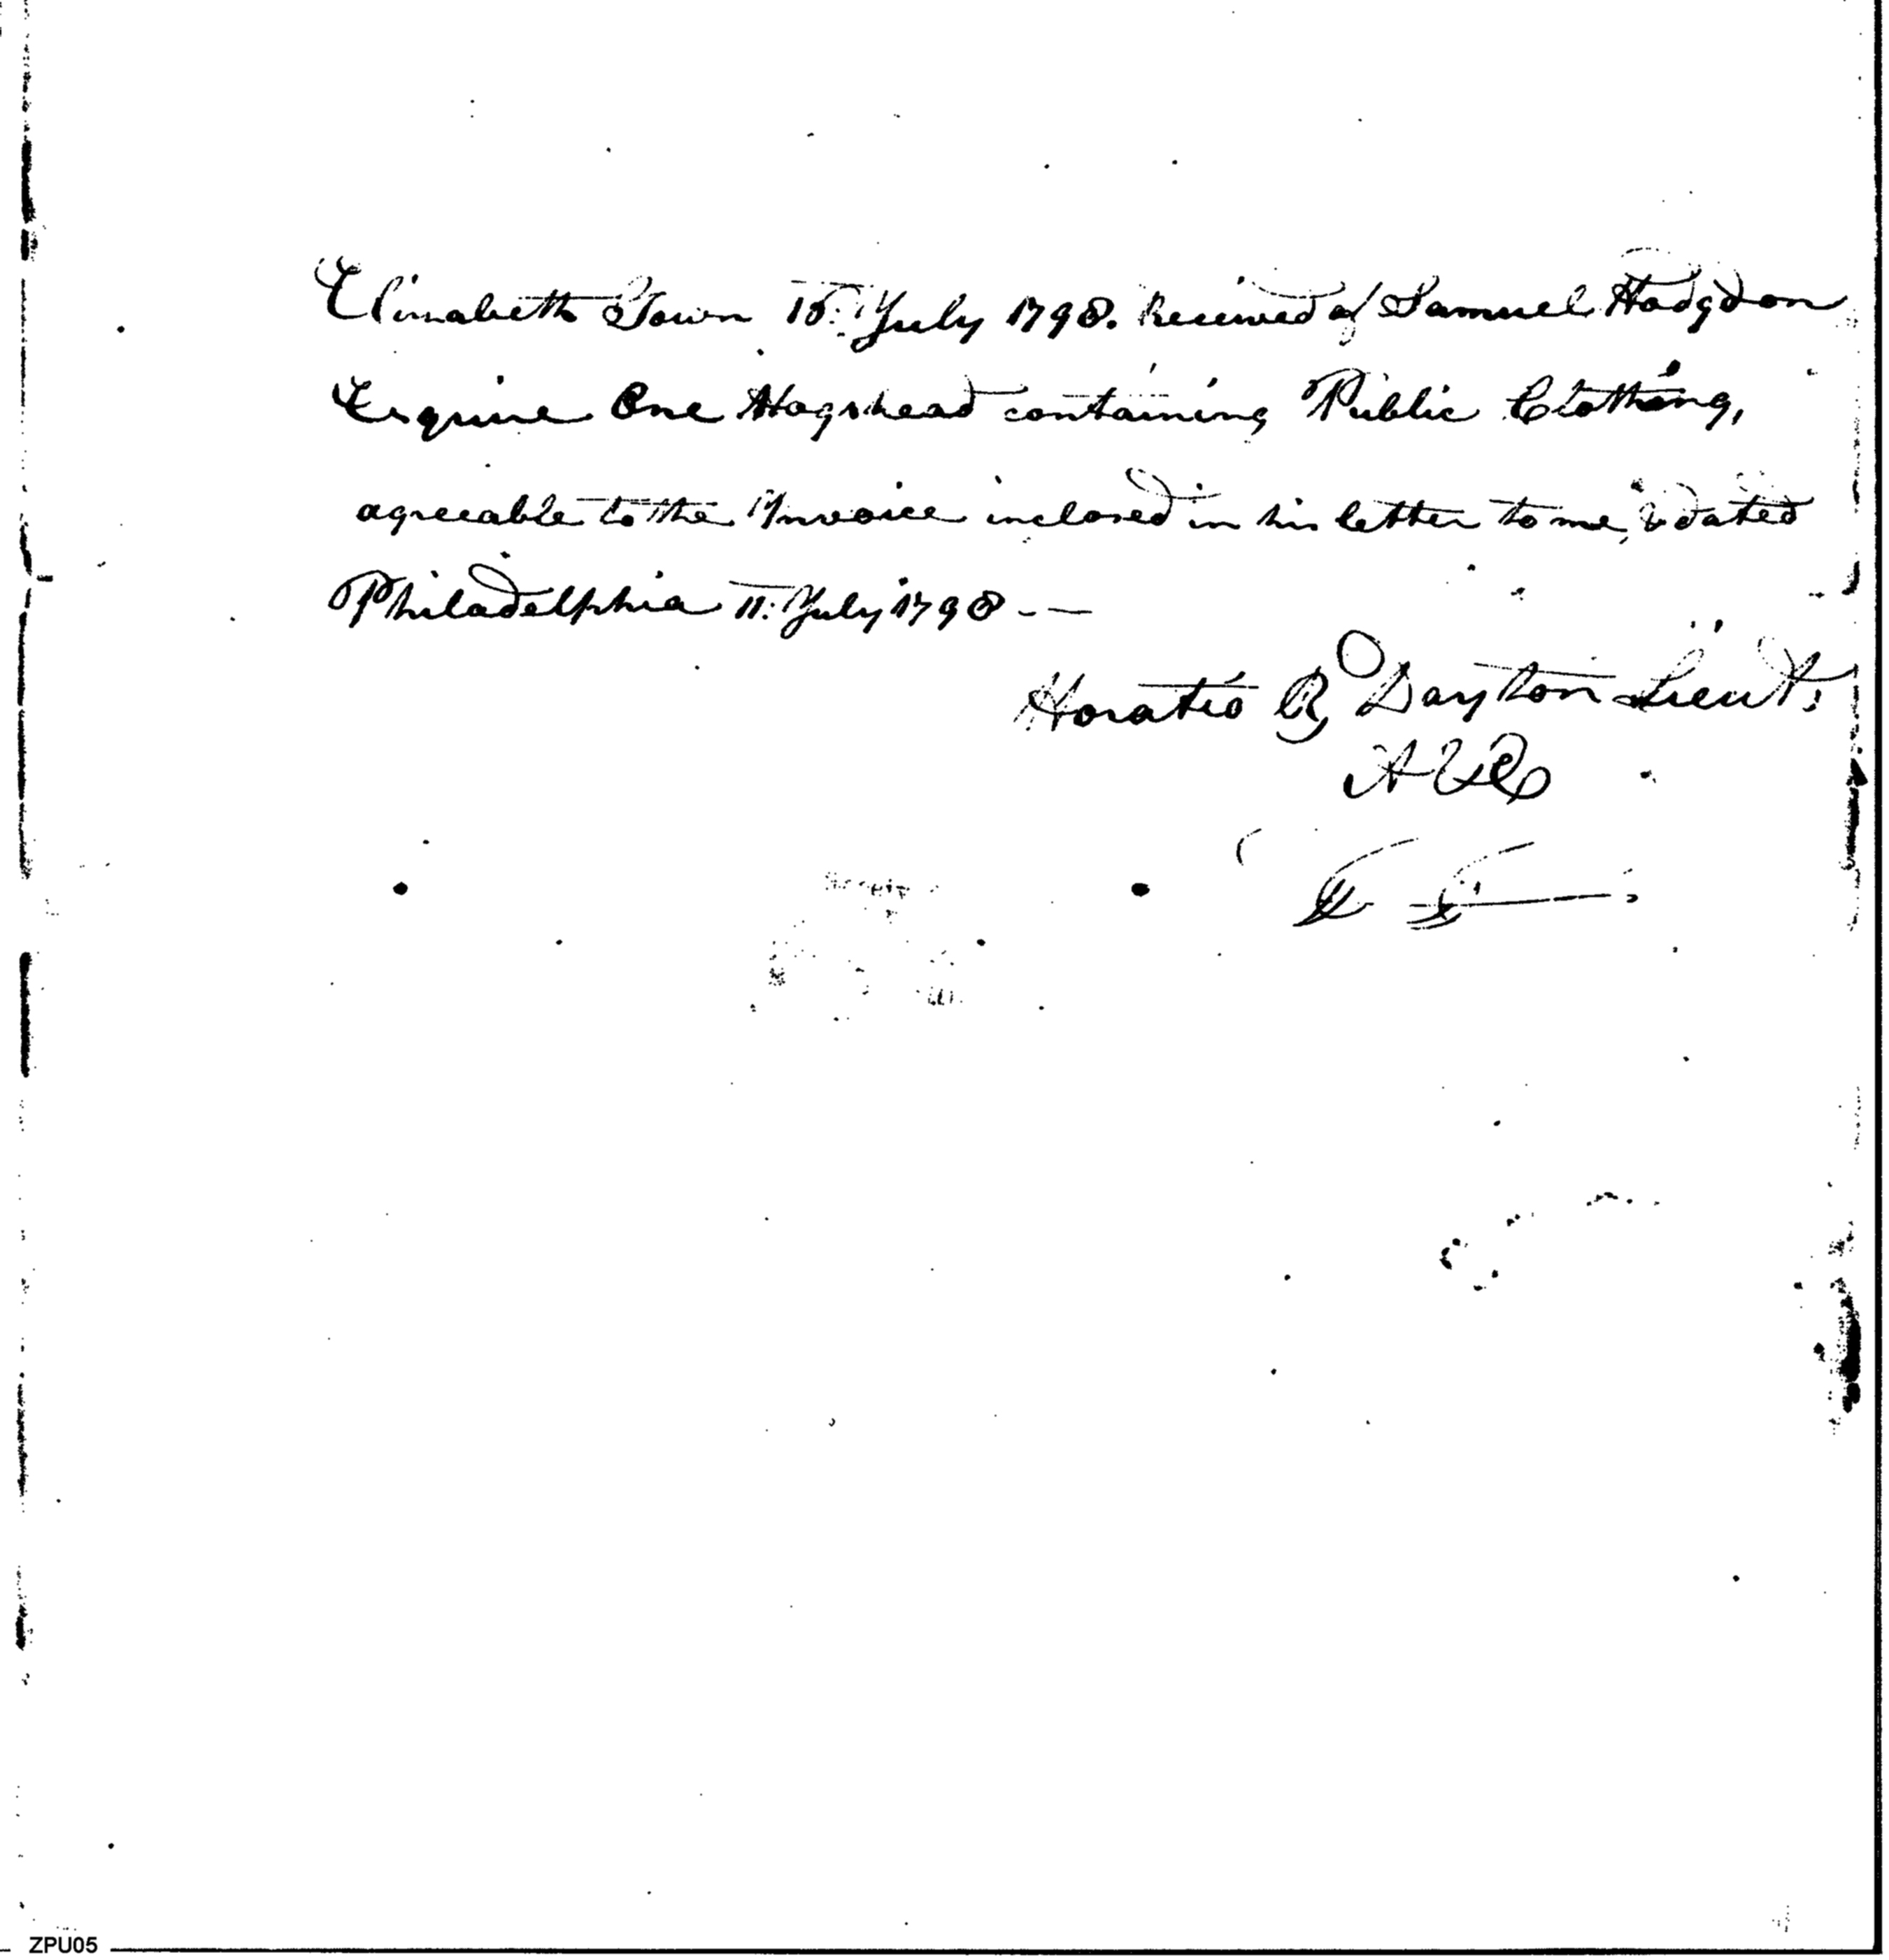 Elizabeth Town 18. July 1798. Received of Samuel Hodgdon
Esquire One Hogshead containing Public Clothing,
agreeable to the Invoice inclosed in his letter to me, & dated
Philadelphia 11. July 1798 - —
Horatio R Dayton Lieut.
ZPU05